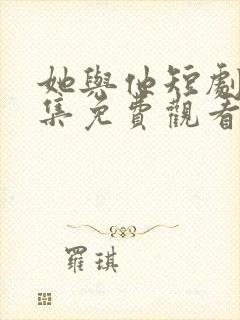 她與他短劇
集免費觀看
羅琪